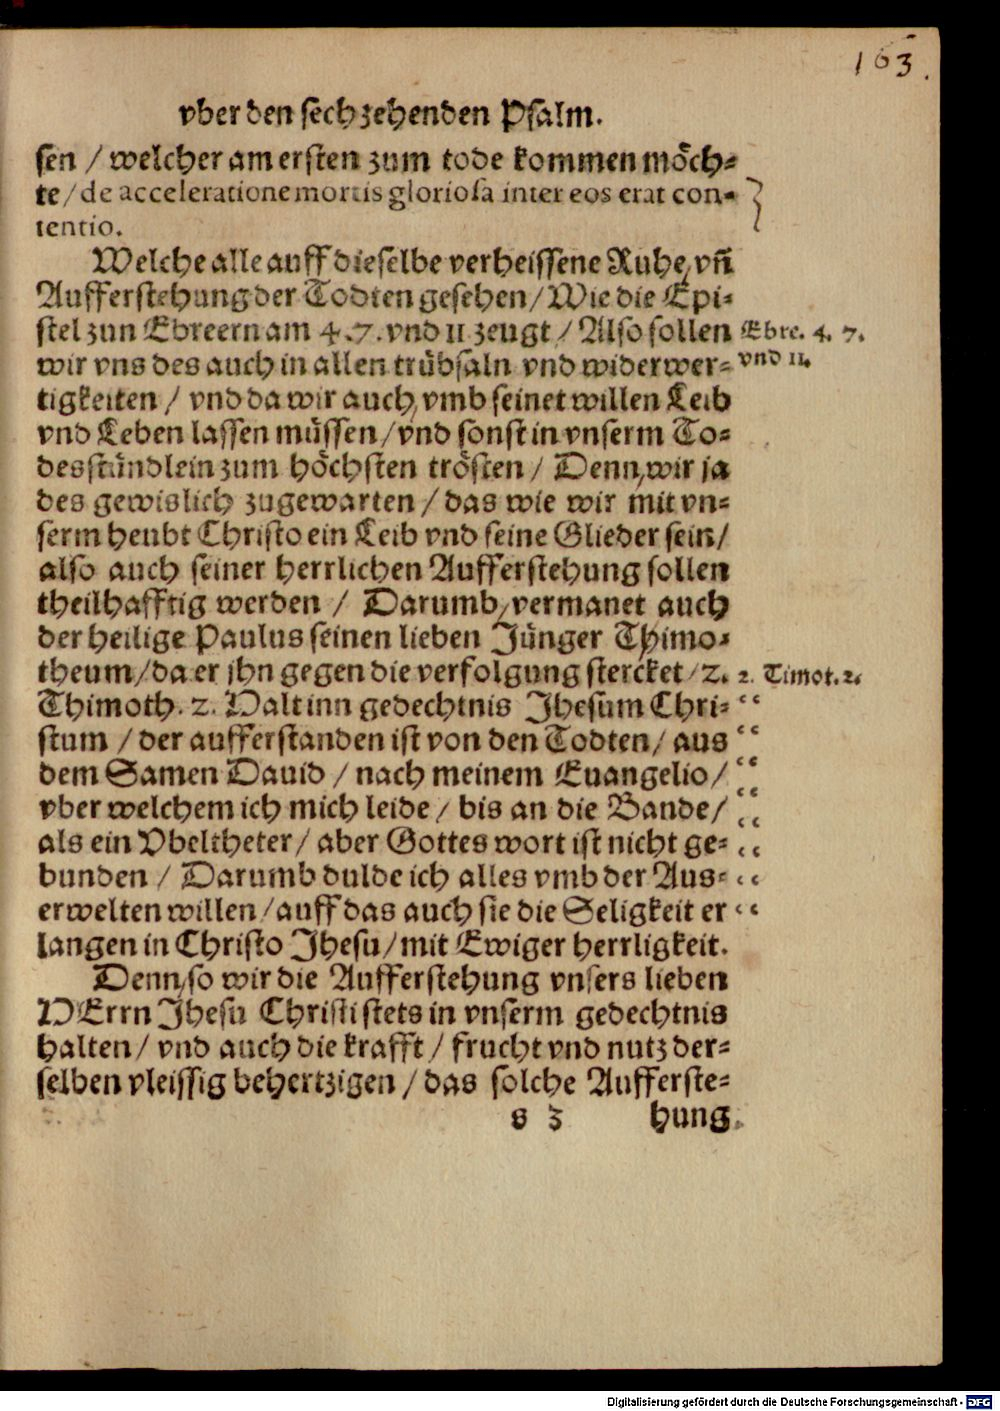 163.
vber den sechzehenden Psalm.
sen / welcher am ersten zum tode kommen möch⸗
te / de acceleratione mortis gloriosa inter eos erat con⸗
tentio.
Welche alle auff dieselbe verheissene Ruhe, vñ
Aufferstehung der Todten gesehen / Wie die Epi⸗
stel zun Ebreern am 4. 7. vnd 11 zeugt / Also sollen Ebre. 4. 7.
wir vns des auch in allen trübsaln vnd widerwer⸗ vnd 11.
tigkeiten / vnd da wir auch, vmb seinet willen Leib
vnd Leben lassen müssen / vnd sonst in vnserm To⸗
desstündlein zum höchsten trösten / Denn, wir ja
des gewislich zugewarten / das wie wir mit vn⸗
serm heubt Christo ein Leib vnd seine Glieder sein /
also auch seiner herrlichen Aufferstehung sollen
theilhafftig werden / Darumb, vermanet auch
der heilige Paulus seinen lieben Jünger Thimo⸗
theum / da er jhn gegen die verfolgung stercket / 2. 2. Timot. 2.
Thimoth. 2. Halt inn gedechtnis Jhesum Chri⸗ “
stum / der aufferstanden ist von den Todten / aus “
dem Samen Dauid / nach meinem Euangelio / “
vber welchem ich mich leide / bis an die Bande / “
als ein Vbeltheter / aber Gottes wort ist nicht ge⸗ “
bunden / Darumb dulde ich alles vmb der Aus⸗ “
erwelten willen / auff das auch sie die Seligkeit er “
langen in Christo Jhesu / mit Ewiger herrligkeit.
Denn, so wir die Aufferstehung vnsers lieben
HErrn Jhesu Christi stets in vnserm gedechtnis
halten / vnd auch die krafft / frucht vnd nutz der⸗
selben vleissig behertzigen / das solche Aufferste⸗
s 3 hung.
Digitalisierung gefördert durch die Deutsche Forschungsgemeinschaft - DFG